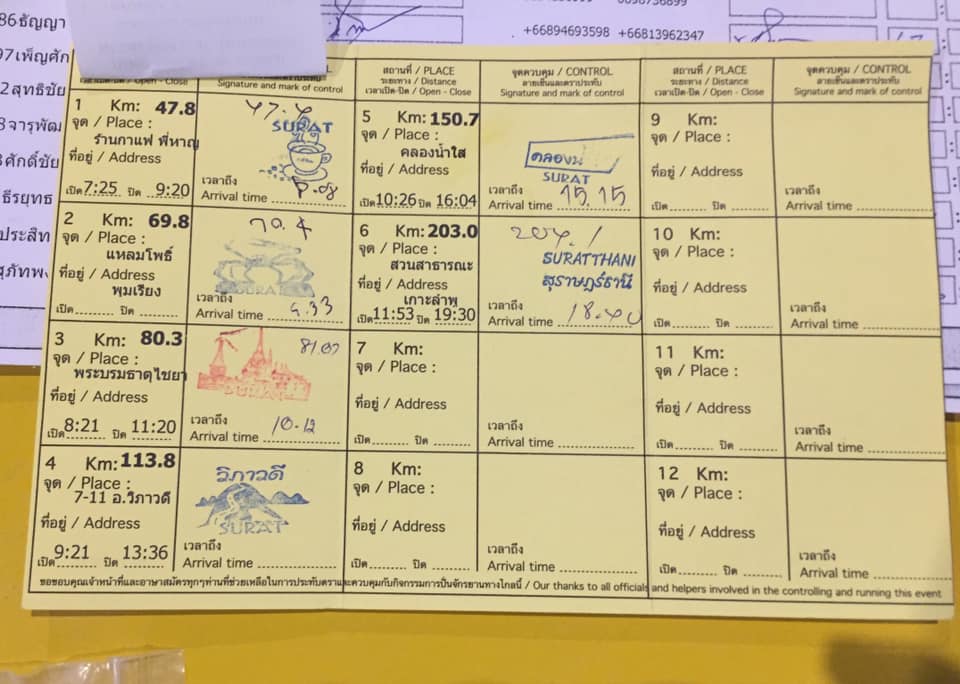 86ธัญญา
97เพ็ญศัก
2สุทธิชัย
จารุพัฒ
ศักดิ์ชัย
ธีรยุทธ
ประสิท
สุภัทพง
+66894693598 +66813962347
เวลาเปิด-ปิด / Open - Close
Signature and mark of control
1 Km: 47.8
จุด / Place :
ร้านกาแฟ พี่หาญ
ที่อยู่ / Address
เปิด 7:25 ปิด 9:20
47.8
SURAT
เวลาถึง
Arrival time
2 Km: 69.8
จุด / Place :
แหลมโพธิ์
ที่อยู่ / Address
พุมเรียง
เปิด ปิด
70.4
SURAT
เวลาถึง
Arrival time 9.33
3 Km: 80.3
จุด / Place :
พระบรมธาตุไชยา
ที่อยู่ / Address
เปิด 8:21 ปิด 11:20
81.07
เวลาถึง
Arrival time 10.12
4 Km: 113.8
จุด / Place :
7-11 อ.วิภาวดี
ที่อยู่ / Address
เปิด 9:21 ปิด 13:36
วิภาวดี
SURAT
เวลาถึง
Arrival time
สถานที่ / PLACE
ระยะทาง / Distance
เวลาเปิด-ปิด / Open - Close
จุดควบคุม / CONTROL
ลายเซ็นและตราประทับ
Signature and mark of control
5 Km: 150.7
จุด / Place :
คลองน้ำใส
ที่อยู่ / Address
เปิด 10:26 ปิด 16:04
คลองน
SURAT
เวลาถึง
Arrival time 15.15
6 Km: 203.0
จุด / Place :
สวนสาธารณะ
ที่อยู่ / Address
เกาะลำพู
เปิด 11:53 ปิด 19:30
204.1
SURATTHANI
สุราษฎร์ธานี
เวลาถึง
Arrival time 18.40
7 Km:
จุด / Place :
ที่อยู่ / Address
เปิด ปิด
เวลาถึง
Arrival time
8 Km:
จุด / Place :
ที่อยู่ / Address
เปิด ปิด
เวลาถึง
Arrival time
สถานที่ / PLACE
ระยะทาง / Distance
เวลาเปิด-ปิด / Open - Close
จุดควบคุม / CONTROL
ลายเซ็นและตราประทับ
Signature and mark of control
9 Km:
จุด / Place :
ที่อยู่ / Address
เปิด ปิด
เวลาถึง
Arrival time
10 Km:
จุด / Place :
ที่อยู่ / Address
เปิด ปิด
เวลาถึง
Arrival time
11 Km:
จุด / Place :
ที่อยู่ / Address
เปิด ปิด
เวลาถึง
Arrival time
12 Km:
จุด / Place :
ที่อยู่ / Address
เปิด ปิด
เวลาถึง
Arrival time
ขอขอบคุณเจ้าหน้าที่และอาษาสมัครทุกๆท่านที่ช่วยเหลือในการประทับตราและควบคุมกิจกรรมการปั่นจักรยานทางไกลนี้ / Our thanks to all officials and helpers involved in the controlling and running this event